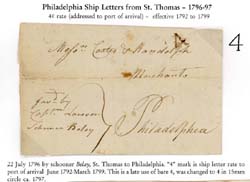 Philadelphia Ship Letters from St. Thomas - 1796-97
4¢ rate (addressed to port of arrival) - effective 1792 to 1799
4
Messrs. Coxes & Randolph
Merchants
Philadelphia
Capt. Lawson
Schooner Betsy
22 July 1796 by schooner Betsy, St. Thomas to Philadelphia. "4" mark is ship letter rate to
port of arrival June 1792-March 1799. This is a late use of bare 4, was changed to 4 in 15mm
circle ca. 1797.